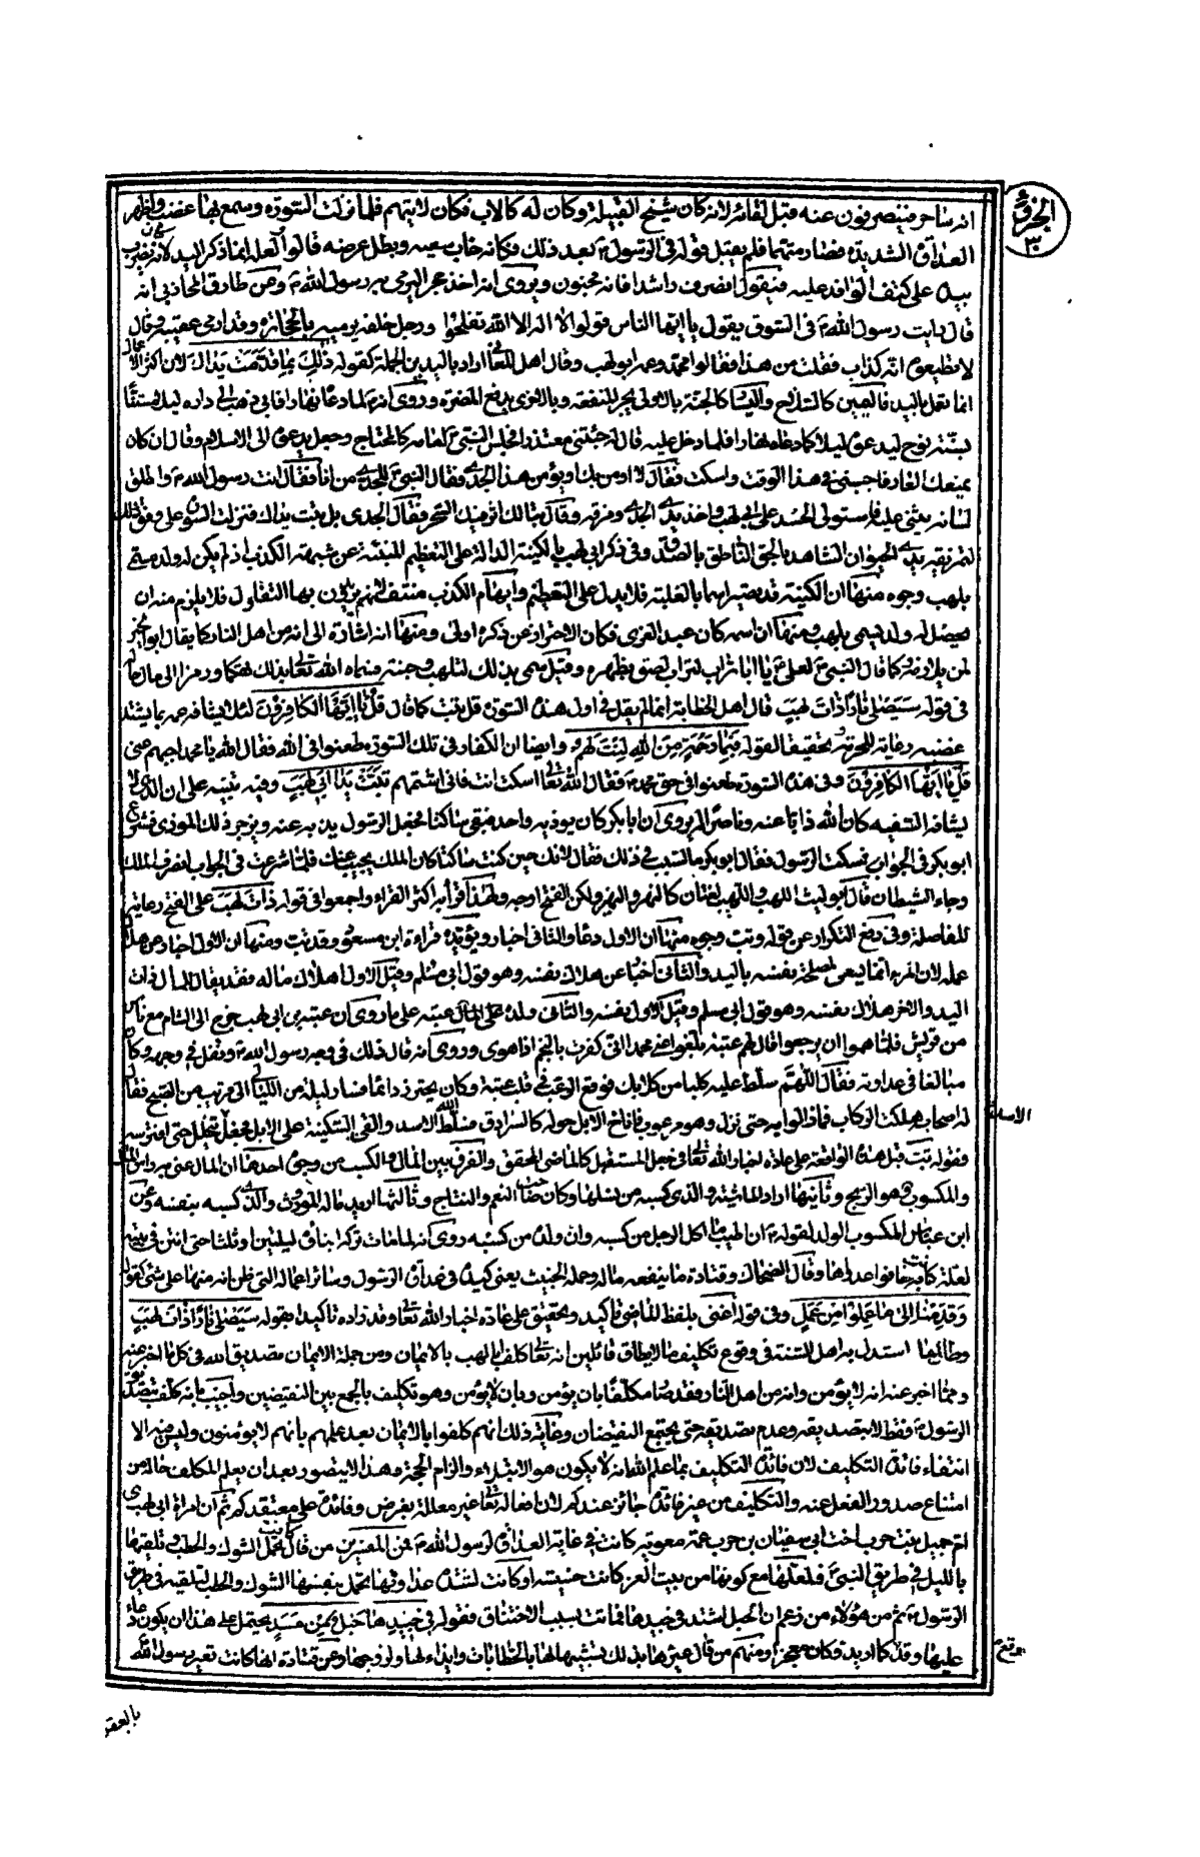 الجزؤ
٣٠
انه ساحر فينصرفون عنه قبل لقائه لانه كان شيخ القبيلة وكان له كالاب فكان لا يتهم فلما نزلت السورة وسمع بها غضب واظهر
العداوة الشديدة فصار متهما فلم يقبل قوله فى الرسول ؐ بعد ذلك فكانه خاب سعيه وبطل غرضه قالوا ولعله انما ذكر اليد لانه كان يضرب
بيده على كتف الوافد عليه فيقول انصرف راشدا فانه مجنون ويروى انه اخذ حجرا ليرمى به رسول الله ؐ وعن طارق المحاربى انه
قال رايت رسول الله ؐ فى السوق يقول يا ايها الناس قولوا لا اله الا الله تفلحوا ورجل خلفه يرميه بالحجارة وقد ادمى عقبيه وقال
لا تطيعوه انه كذاب فقلت من هذا فقالوا محمد وعمه ابو لهب وقال اهل المعانى اراد باليدين الجملة كقوله ذٰلِكَ بِمَا قَدَّمَتْ يَدَاكَ لان اكثر الاعمال
انما تعمل باليد فاليمين كالسلاح واليسار كالجنة بالاولى يجر المنفعة وبالاخرى يدفع المضرة وروى انه لما دعاه نهارا فابى ذهب الى داره ليلا مستنا
بسنة نوح ليدعوه ليلا كما دعاه نهارا فلما دخل عليه قال له جئتنى معتذرا فجلس النبى ؐ امامه كالمحتاج وجعل يدعوه الى الاسلام وقال ان كان
يمنعك العار فاجبنى فى هذا الوقت واسكت فقال لا اومن بك او يؤمن هذا الجدى فقال النبى ؐ للجدى من انا فقال انت رسول الله ؐ واطلق
لسانه يثنى عليه فاستولى الحسد على ابى لهب واخذ يدى الجدى ومزقه وقال تبا لك اثر فيك السحر فقال الجدى بل تبت يداك فنزلت السورة على وفق ذلك
لتمزيقه يدى الحيوان الشاهد بالحق الناطق بالصدق وفى ذكر ابى لهب بالكنية الدالة على التعظيم المنبئة عن شبهة الكذب اذ لم يكن له ولد مسمى
بلهب وجوه منها ان الكنية قد تصير اسما بالغلبة فلا يدل على التعظيم وايهام الكذب منتف لانهم يريدون بها التفاول فلا يلزم منه ان
يحصل له ولد يسمى بلهب ومنها ان اسمه كان عبد العزى فكان الاحتراز عن ذكره اولى ومنها انه اشارة الى انه من اهل النار كما يقال ابو الخير
لمن يلازمه وكما قال النبى ؐ لعلى يا ابا تراب لتراب لصق بظهره وقيل سمى بذلك لتلهب وجنتيه فسماه الله تعالى بذلك تهكما ورمزا الى مآل حاله
فى قوله سَيَصْلٰى نَارًا ذَاتَ لَهَبٍ قال اهل الخطابة انما لم يقل فى اول هذه السورة قل تبت كما قال قُلْ يَا اَيُّهَا الْكَافِرُوْنَ لئلا يشافه عمه بما يشتد
غضبه رعاية للحرمة وتحقيقا لقوله فَبِمَا رَحْمَةٍ مِنَ اللّٰهِ لِنْتَ لَهُمْ وايضا ان الكفار فى تلك السورة طعنوا فى الله فقال الله يا محمد اجبهم عنى
قُلْ يَا اَيُّهَا الْكَافِرُوْنَ وفى هذه السورة طعنوا فى حق محمد ؐ فقال الله تعالى اسكت انت فانى اشتمهم تَبَّتْ يَدَا اَبِىْ لَهَبٍ وفيه تنبيه على ان الذى لا
يشافه السفيه كان الله ذابا عنه وناصرا له يروى ان ابا بكر كان يوذيه واحد فبقى ساكتا فجعل الرسول يذب عنه ويزجر ذلك الموذى فشرع
ابو بكر فى الجواب فسكت الرسول فقال ابو بكر ما السبب فى ذلك فقال لانك حين كنت ساكتا كان الملك يجيب عنك فلما شرعت فى الجواب انصرف الملك
وجاء الشيطان قال ابو ليث اللهب واللهب لغتان كالنهر والنهر ولكن الفتح اوجه ولهذا قرأ به اكثر القراء واجمعوا فى قوله ذَاتَ لَهَبٍ على الفتح رعاية
للفاصلة وفى دفع التكرار عن قوله وتب وجوه منها ان الاول دعاء والثانى اخبار ويؤيده قراءة ابن مسعود وقد تب ومنها ان الاول اخبار عن هلاك
عمله لان المرء انما يسعى لمصلحة نفسه باليد والثانى اخبار عن هلاك نفسه وهو قول ابى مسلم وقيل الاول اهلاك ماله فقد يقال للمال ذات
اليد والاخر هلاك نفسه وهو قول ابى مسلم وقيل الاول نفسه والثانى ولده عتبة على ما روى ان عتبة بن ابى لهب خرج الى الشام مع ناس
من قريش فلما هموا ان يرجعوا قال لهم عتبة بلغوا عنى محمدا انى كفرت بالنجم اذا هوى وروى انه قال ذلك فى وجه رسول الله ؐ وتفل فى وجهه وكان
مبالغا فى عداوته فقال اللهم سلط عليه كلبا من كلابك فوقع الرعب فى قلب عتبة وكان يحترز دائما فسار ليلة من الليالى الى قريب من الصبح فقال
له اصحابه هلكت الركاب فما زالوا به حتى نزل وهو مرعوب فاناخ الابل حوله كالسرادق فسلط الله الاسد والقى السكينة على الابل فجعل يتخلل حتى افترسه
الاسد
فقوله تبت قبل هذه الواقعة على عادة اخبار الله تعالى فى جعل المستقبل كالماضى المحقق والفرق بين المال والكسب من وجوه احدها ان المال عنى به راس المال
والمكسوب هو الربح وثانيها اراد الماشية والذى كسبه من نسلها وكان صاحب النعم والنتاج وثالثها اريد ماله الموروث والذى كسبه بنفسه وعن
ابن عباس المكسوب الولد لقوله ؐ ان اطيب ما اكل الرجل من كسبه وان ولده من كسبه روى انه لما مات تركه ابناه ليلتين او ثلثا حتى انتن فى بيته
لعلة كانت به خافوا عدواها وقال الضحاك وقتادة ما ينفعه ماله وعمله الخبيث يعنى كيده فى عداوة الرسول وسائر اعماله التى ظن انه منها على شئ كقوله
وَقَدِمْنَا اِلٰى مَا عَمِلُوْا مِنْ عَمَلٍ وفى قوله اغنى بلفظ الماضى تاكيد وتحقيق على عادة اخبار الله تعالى وقد زاده تاكيدا بقوله سَيَصْلٰى نَارًا ذَاتَ لَهَبٍ
وطالما استدل به اهل السنة فى وقوع تكليف ما لا يطاق قائلين انه تعالى كلف ابا لهب بالايمان ومن جملة الايمان تصديق الله فى كل ما اخبر عنه
ومما اخبر عنه انه لا يؤمن وانه من اهل النار فقد صار مكلفا بان يؤمن وبان لا يؤمن وهو تكليف بالجمع بين النقيضين واجيب بانه كلف بتصديق
الرسول ؐ فقط لا بتصديقه وعدم تصديقه حتى يجتمع النقيضان وغاية ذلك انهم كلفوا بالايمان بعد علمهم بانهم لا يؤمنون وليس فيه الا
انتفاء فائدة التكليف لان فائدة التكليف بما علم الله انه لا يكون هو الابتلاء والزام الحجة وهذا لا يتصور بعد ان يعلم المكلف حاله من
امتناع صدور الفعل عنه والتكليف من غير فائدة جائز عندكم لان افعاله تعالى غير معللة بغرض وفائدة على معتقدكم ثم ان امراة ابى لهب
ام جميل بنت حرب اخت ابى سفيان بن حرب عمة معوية كانت فى غاية العداوة لرسول الله ؐ فمن المفسرين من قال كانت تحمل الشوك والحطب وتلقيهما
بالليل فى طريق النبى ؐ فلعلها مع كونها من بيت العز كانت خسيسة او كانت لشدة عداوتها تحمل بنفسها الشوك والحطب لتلقيه فى طريق
الرسول ؐ ثم من هؤلاء من زعم ان الحبل اشتد فى جيدها فماتت بسبب الاختناق فقوله فِىْ جِيْدِهَا حَبْلٌ مِّنْ مَسَدٍ يحتمل على هذا ان يكون دعاء
عليها وقد وقع كما اريد وكان معجزا ومنهم من قال عيرها بذلك تشبيها لها بالحطابات وايذاء لها ولزوجها وعن قتادة انها كانت تعير رسول الله
بالفقر